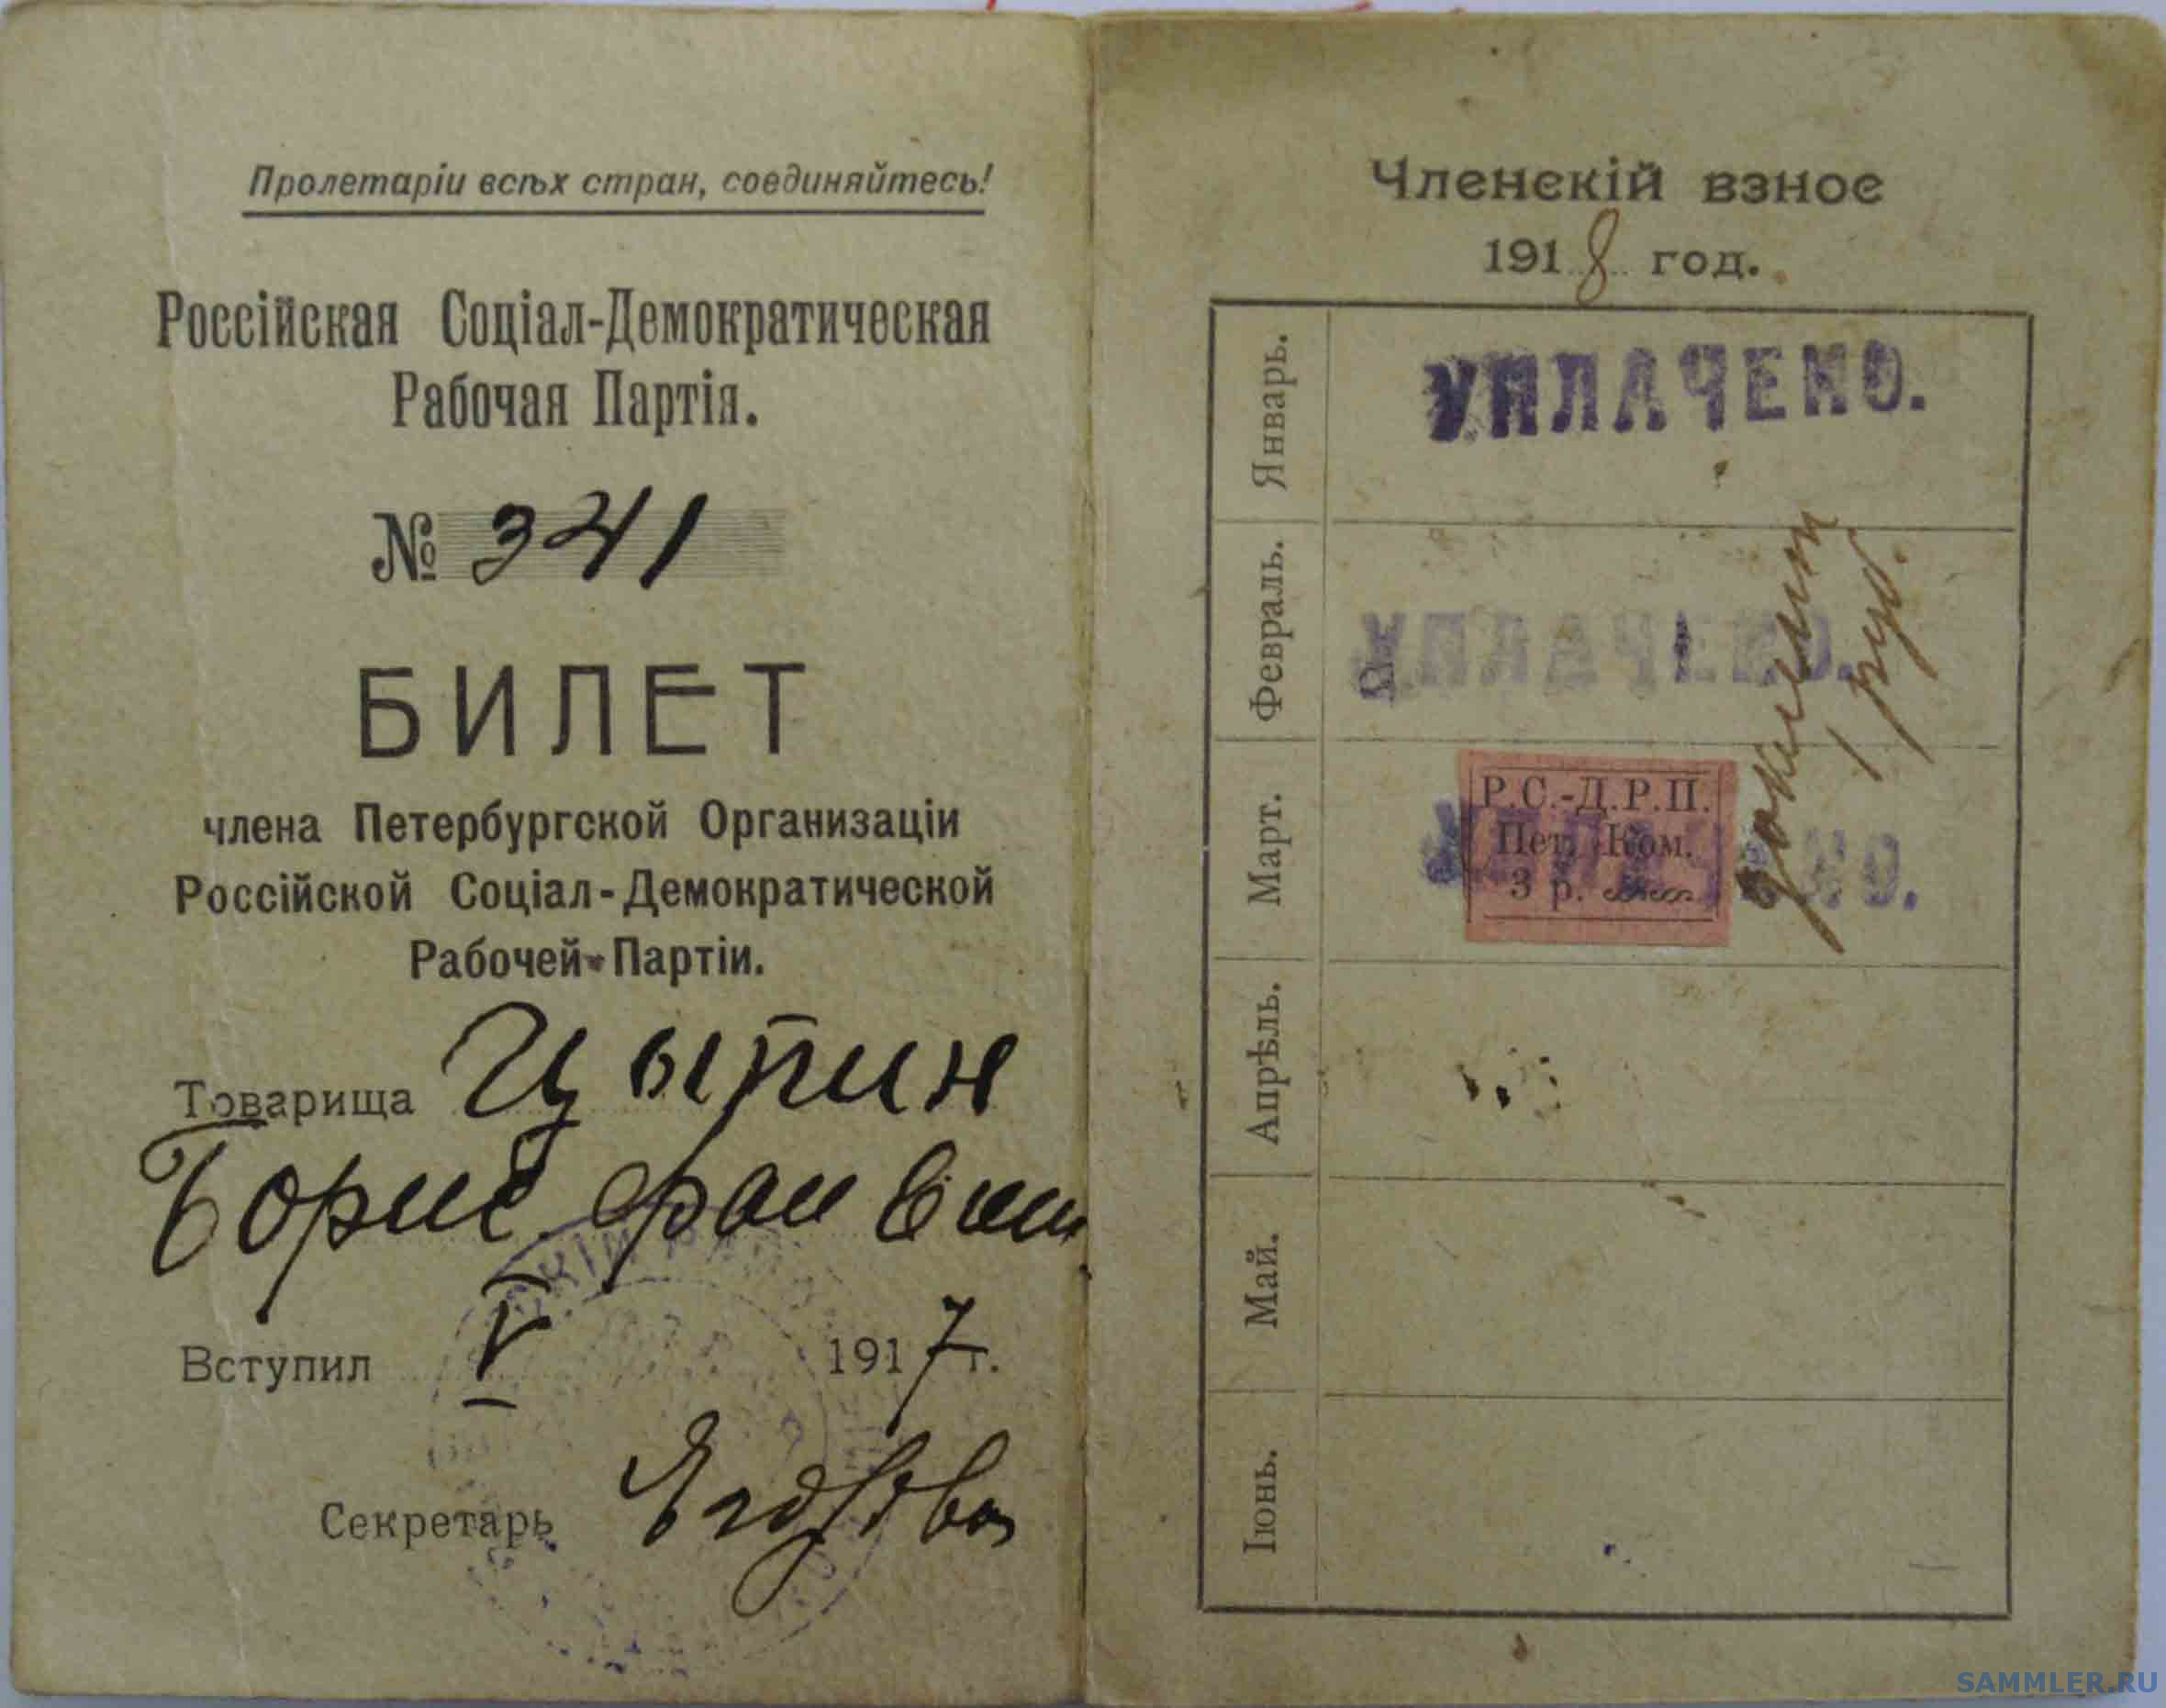 Пролетаріи всѣх стран, соединяйтесь!
Россійская Соціал-Демократическая
Рабочая Партія.
№ 341
БИЛЕТ
члена Петербургской Организаціи
Россійской Соціал-Демократической
Рабочей Партіи.
Товарища Цыпин
Борис
Вступил V 1917 г.
Секретарь
Членскій взнос
1918 год.
Январь.
УПЛАЧЕНО.
Февраль.
УПЛАЧЕНО.
Март.
УПЛАЧЕНО.
Р.С.-Д.Р.П.
Пет. Ком.
3 р.
1 руб.
Апрѣль.
Май.
Іюнь.
SAMMLER.RU